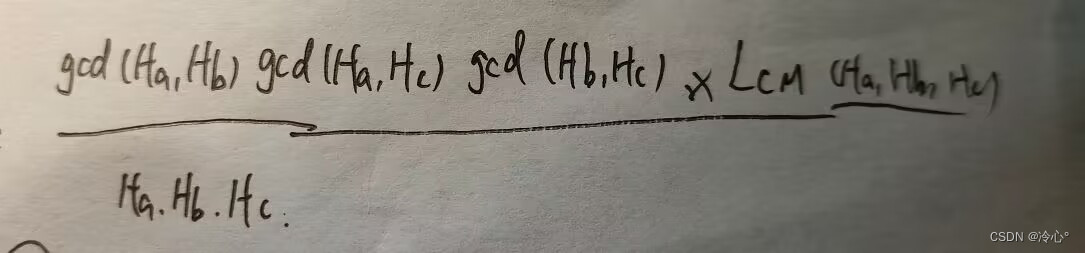 gcd (Ha, Hb) gcd (Ha, Hc) gcd (Hb, Hc) × LCM (Ha, Hb, Hc)
Ha. Hb. Hc.
CSDN @冷心°